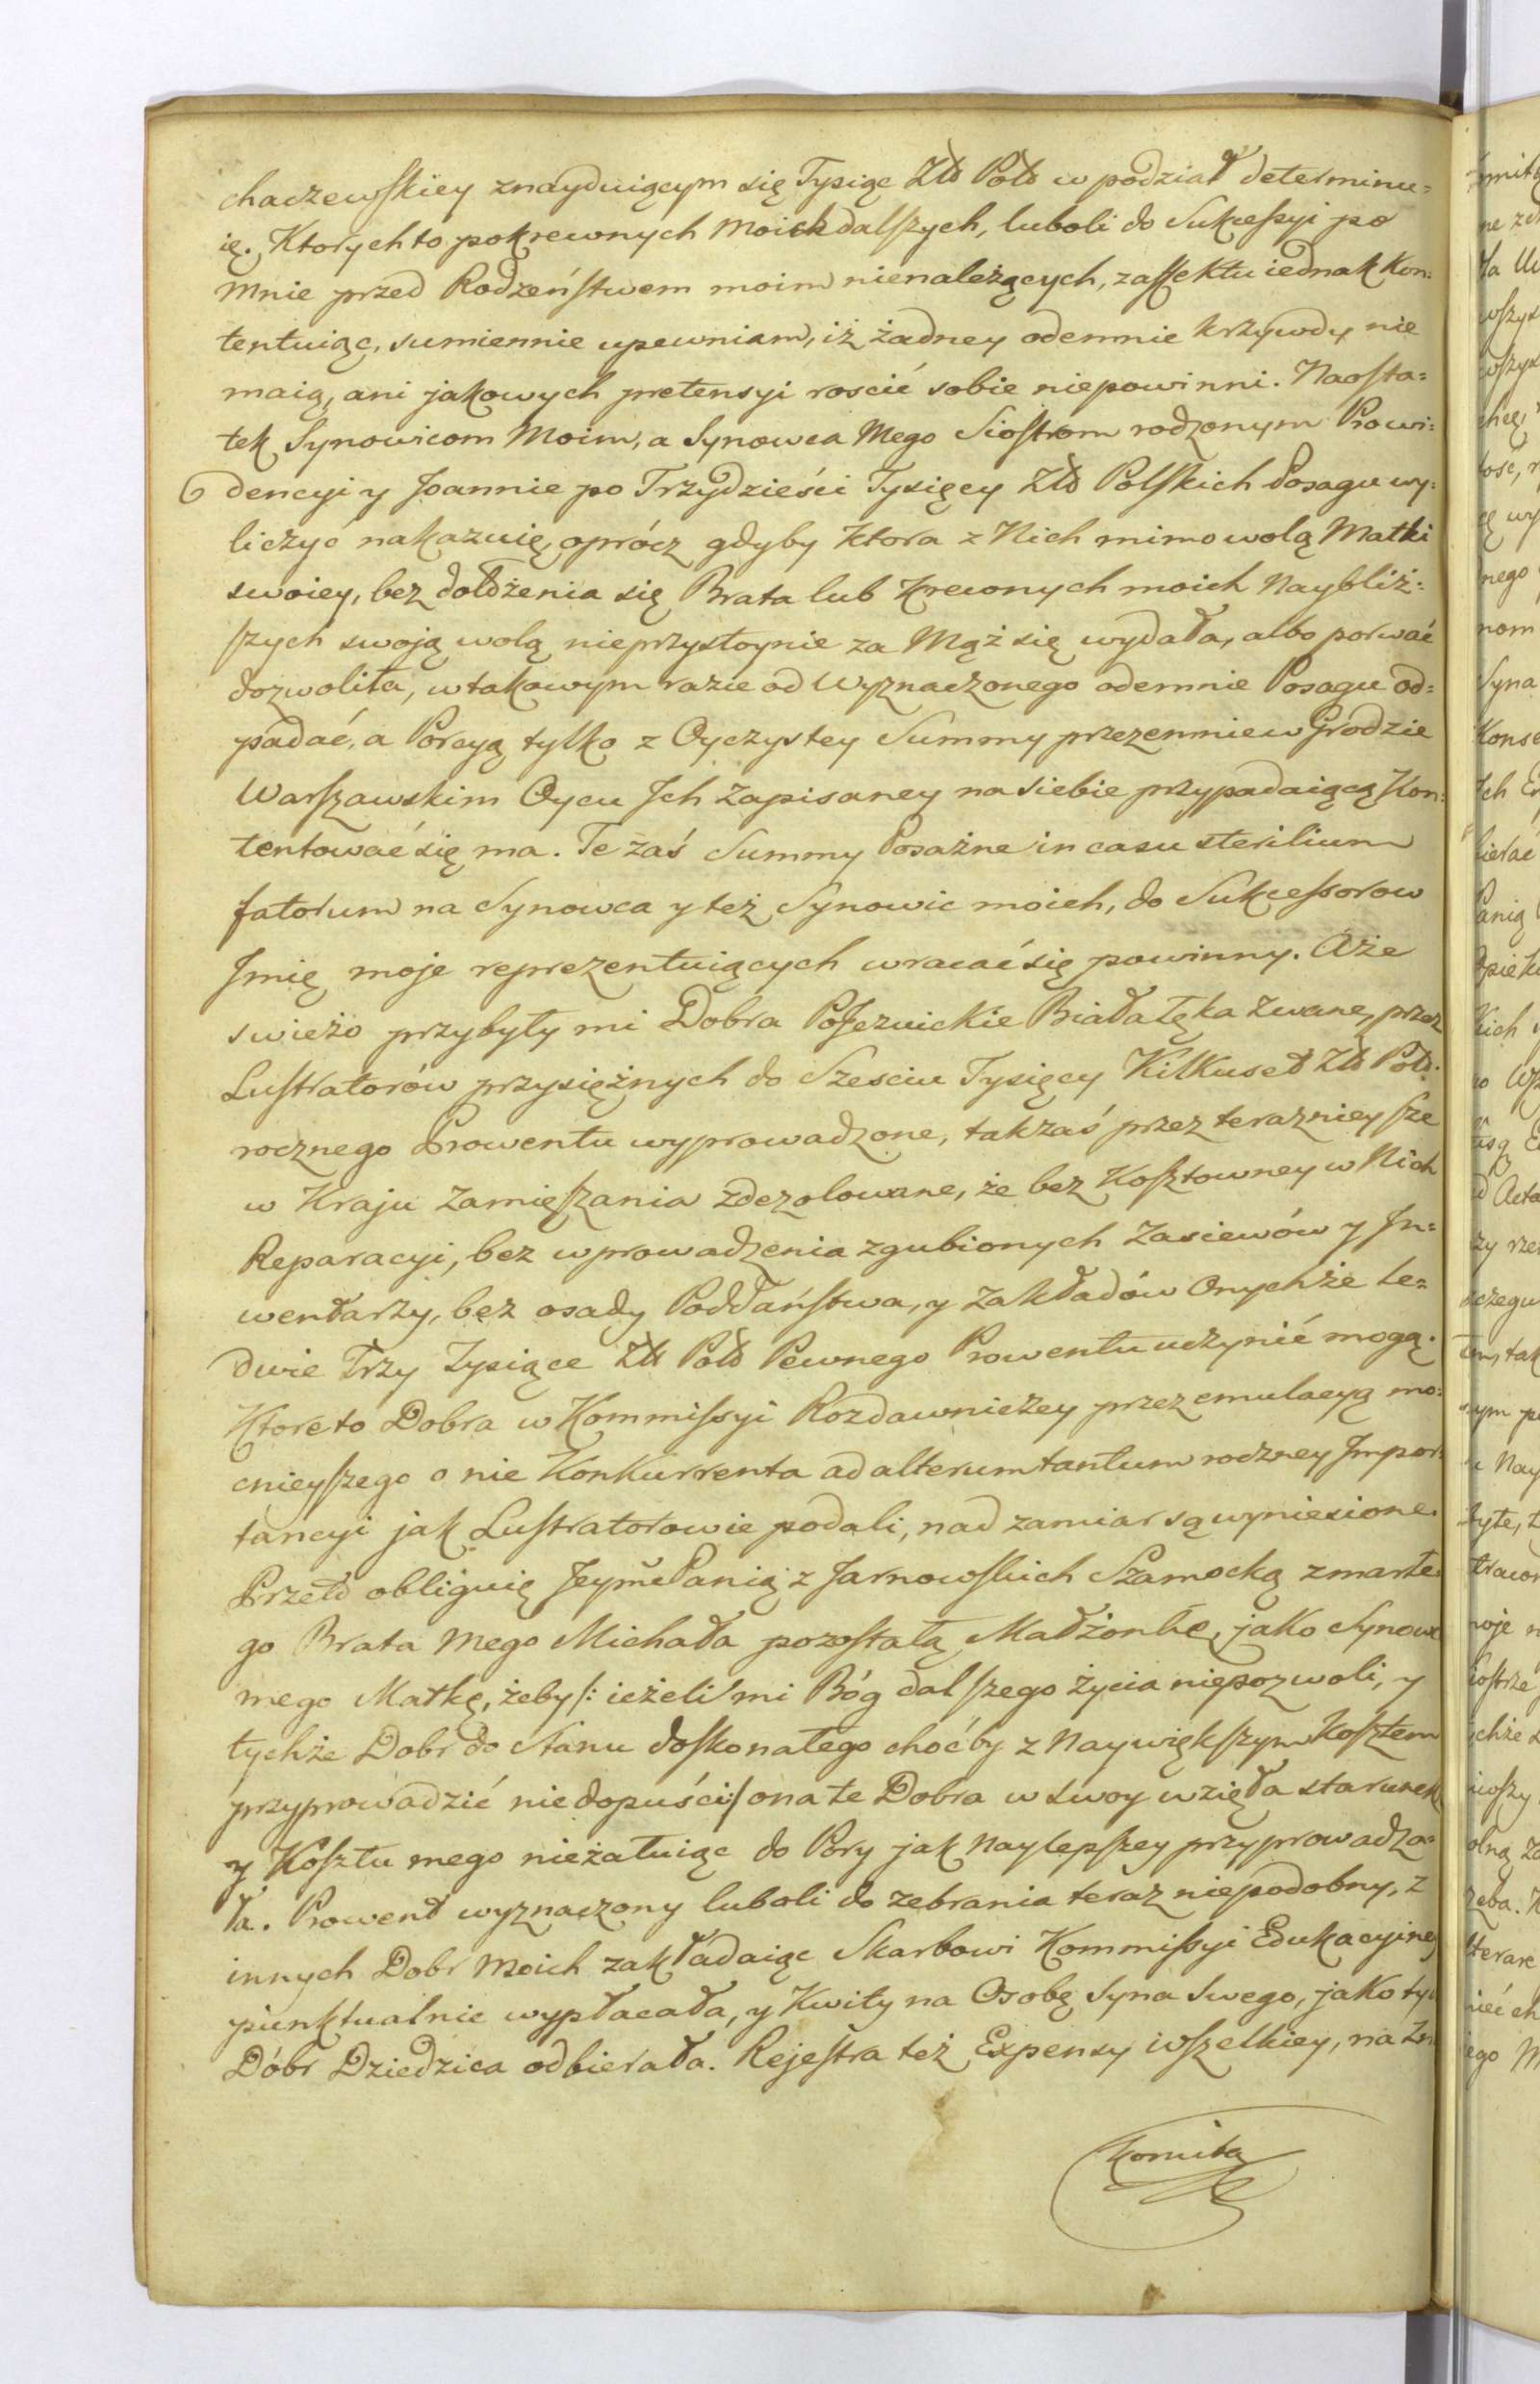 chaczewskiey znayduiącym się Tysiąc Złł Poll w podział determinu=
ię. Ktorych to pokrewnych moich dalszych, luboli do Sukcessyi po
mnie przed Rodzeństwem moim nienależących, z affektu iednak kon=
tentuiąc, sumiennie upewniam, iż żadney odemnie krzywdy nie
maią, ani jakowych pretensyi roscić sobie niepowinni. Naosta=
tek Synowicom Moim, a Synowca Mego Siostrom rodzonym Prowi=
dencyi y Joannie po Trzydzieści Tysięcy Złł Polskich Posagu wy=
liczyć nakazuię, oprócz gdyby ktora z Nich mimo wolą Matki
swoiey, bez dołożenia się Brata lub Krewnych moich Naybliż=
szych swoją wolą nieprzystoynie za Mąż się wydała, albo porwać
dozwoliła, w takowym razie od wyznaczonego odemnie Posagu od=
padać, a Porcyą tylko z Oyczystey Summy przezemnie w Grodzie
Warszawskim Oycu Jch zapisaney na siebie przypadaiącą kon=
tentować się ma. Te zaś Summy Posażne in casu sterilium
fatorum na Synowca y też Synowic moich, do Sukcessorow
Jmię moje reprezentuiących wracać się powinny. Aże
swieżo przybyły mi Dobra PoJezuickie Białałęka zwane, przez
Lustratorów przysiężnych do Szesciu Tysięcy Kilkuset Złł Poll.
rocznego Prowentu wyprowadzone, takzaś przez teraznieysze
w Kraju zamięszania zdezolowane, że bez Kosztowney w Nich
Reparacyi, bez wprowadzenia zgubionych Zasiewów y In=
wentarzy, bez osady Poddaństwa, y Zakładów Onychże le=
dwie Trzy Tysiące Złł Poll Pewnego Prowentu uczynić mogą.
Ktore to Dobra w Kommissyi Rozdawniczey przez emulacyą mo=
cnieyszego o nie Konkurrenta ad alterum tantum roczney Jmpor=
tancyi jak Lustratorowie podali, nad zamiar są wyniesione.
Przeto obliguię Jeymć Panią z Jarnowskich Szamocką zmarłe=
go Brata Mego Michała pozostałą Małżonkę, jako Synowca
mego Matkę, żeby /: ieżeli mi Bóg dalszego życia niepozwoli, y
tychże Dobr do Stanu doskonałego choćby z Naywiększym Kosztem
przyprowadzić niedopuści :/ ona te Dobra w swoy wzięła starunek
y Kosztu mego nieżałuiąc do Pory jak Naylepszey przyprowadza=
ła. Prowent wyznaczony luboli do zebrania teraz niepodobny, z
innych Dobr Moich zakładaiąc Skarbowi Kommissyi Edukacyiney
punktualnie wypłacała, y Kwity na Osobę Syna Swego, jako tych
Dóbr Dziedzica odbierała. Rejestra też Expensy wszelkiey, na